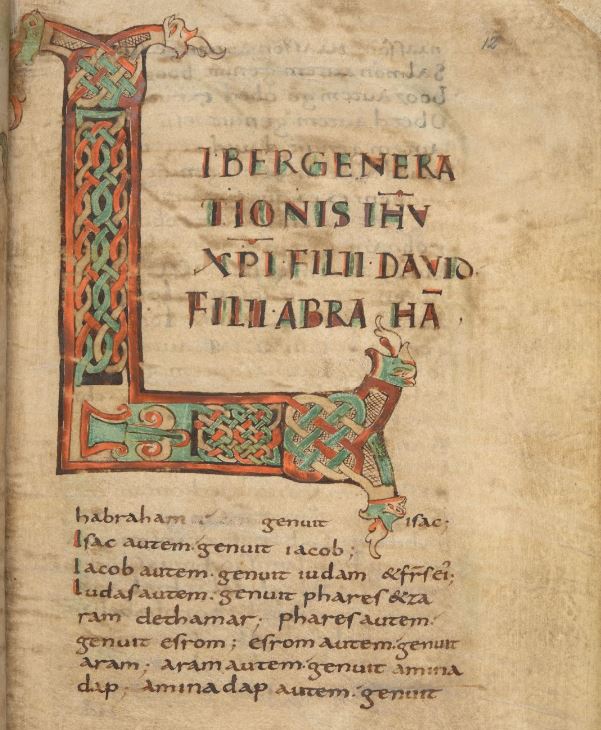 12
LIBERGENERA
TIONIS IHV̄
XP̄I·FILII·DAVID·
FILII·ABRA HĀ·
habraham genuit isac;
Isac autem·genuit iacob;
Iacob autem·genuit iudam &fr̄s ei';
Iudas autem·genuit phares &za
ram dethamar; phares autem·
genuit esrom; esrom autem·genuit
aram; aram autem·genuit amina
dap; aminadap autem·genuit